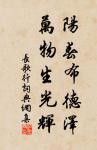 陽春布德澤
萬物生光輝
長歌行詞典網集